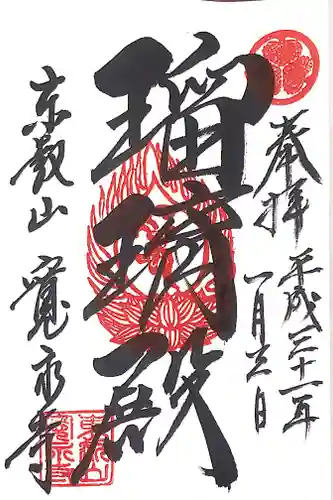 奉拝 平成二十一年
一月三日
瑠璃殿
東叡山 寛永寺